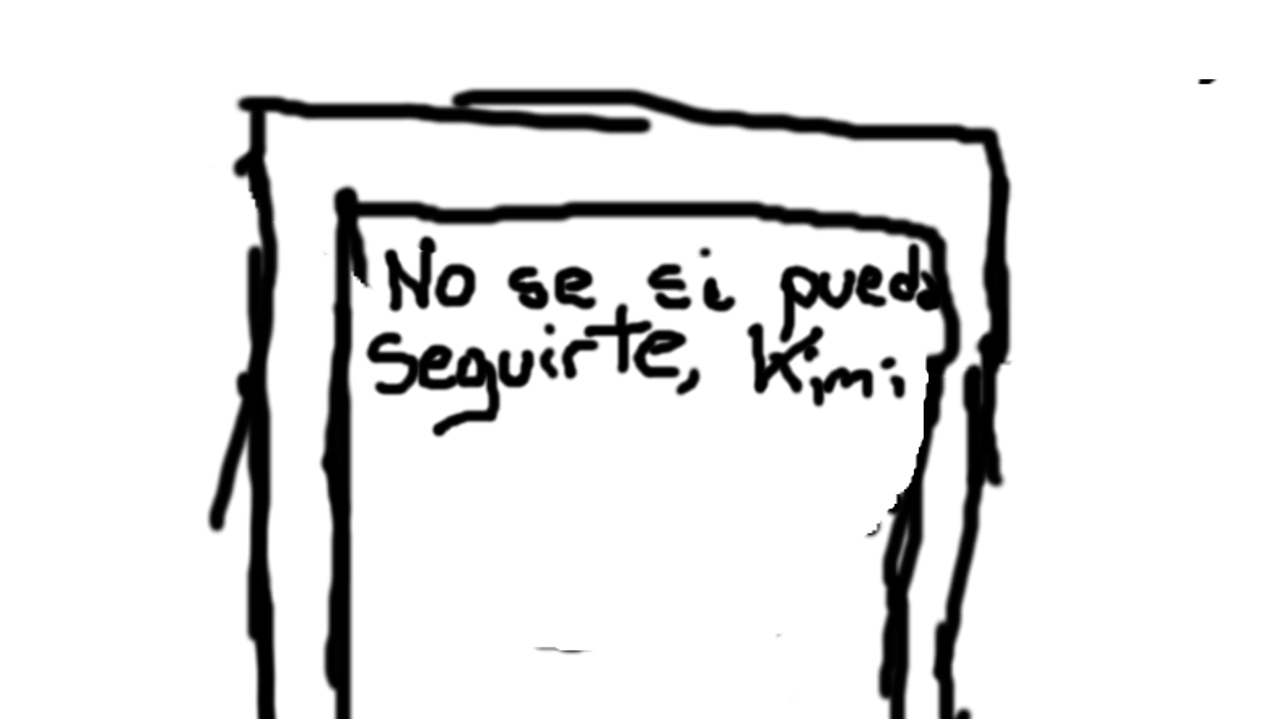 No se si pueda
Seguirte, Kimi